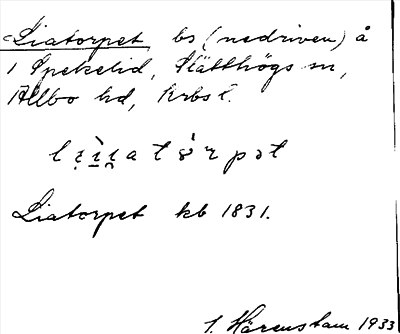 Liatorpet bs (nedriven) å
1 Spekelid, Slätthögs sn,
Allbo hd, Krbs l.
Liatorpet kb 1831.
I. Härenstam 1933